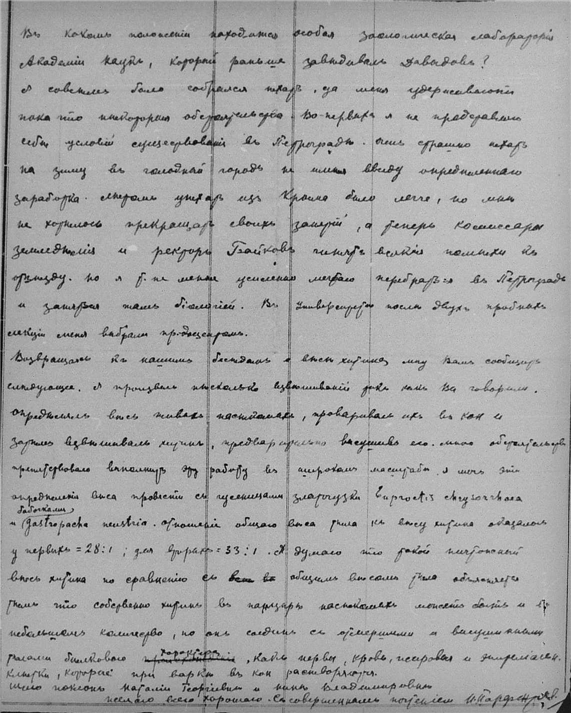 Въ какомъ положеніи находится особая зоологическая лабораторія
Академіи Наукъ, которой раньше завѣдывалъ Давыдовъ?
Я совсѣмъ было собрался ѣхать, да меня удерживаютъ
пока что нѣкоторыя обстоятельства. Во-первыхъ я не представляю
себѣ условій существованія въ Петроградѣ. Очень страшно ѣхать
на зиму въ голодный городъ не имѣя ввиду опредѣленнаго
заработка. Лѣтомъ уѣхать изъ Крыма было легче, но мнѣ
не хотѣлось прекращать своихъ занятій, а теперь комиссары
земледѣлія и ректоръ Байковъ чинятъ всякія помѣхи къ
отъѣзду. Но я т. не менѣе усиленно мечтаю перебраться въ Петроградъ
и заняться тамъ біологіей. Въ Университетѣ послѣ двухъ пробныхъ
лекцій меня выбрали пр-доцентомъ.
Возвращаясь къ нашимъ бесѣдамъ о вѣсѣ хитина могу Вамъ сообщить
слѣдующее. Я произвелъ нѣсколько взвѣшиваній такъ какъ Вы говорили.
Опредѣлялъ вѣсъ живыхъ насѣкомыхъ, проваривалъ ихъ въ КОН и
затѣмъ взвѣшивалъ хитинъ, предварительно высушивъ его. Много обстоятельствъ
препятствовало выполнить эту работу въ широкомъ масштабѣ. Я могъ эти
опредѣленія вѣса провести съ гусеницами златогузки Euproctis chrysorrhoea
бабочками
и Gastropacha neustria. Отношеніе общаго вѣса тѣла къ вѣсу хитина оказалось
у первыхъ = 28:1; для вторыхъ = 33:1. Я думаю что такой ничтожный
вѣсъ хитина по сравненію съ общимъ вѣсомъ тѣла объясняется
тѣмъ что собственно хитинъ въ панцырѣ насѣкомыхъ можетъ быть и въ
небольшомъ количествѣ, но онъ соединенъ съ отмершими и высушенными
тѣлами бѣлковаго характера, какъ нервы, кровь, жировыя и
клѣтки, которые при варкѣ въ КОН растворяются.
Шлю поклонъ Наталіи Георгіевнѣ и Нинѣ Владимировнѣ
желаю всего хорошаго. Съ совершеннымъ почтеніемъ И. Парфентьевъ